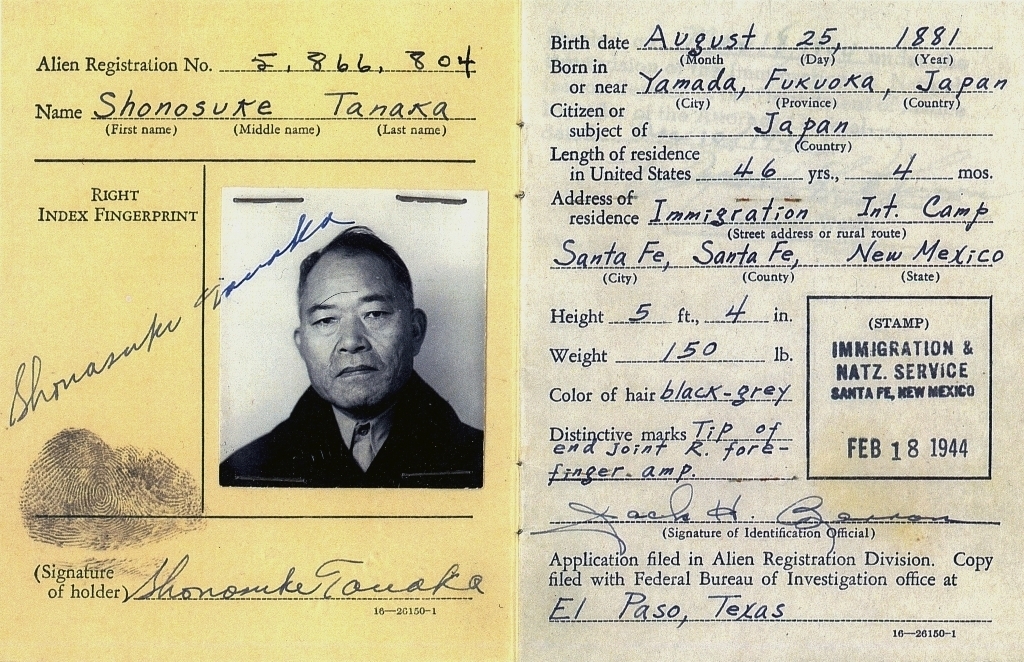 Alien Registration No. 5,866,804
Name Shonosuke Tanaka
(First name) (Middle name) (Last name)
RIGHT
INDEX FINGERPRINT
Shonosuke Tanaka
(Signature
of holder) Shonosuke Tanaka
16—26150-1
Birth date August 25, 1881
(Month (Day) (Year)
Born in
or near Yamada, Fukuoka, Japan
(City) (Province) (Country)
Citizen or
subject of Japan
(Country)
Length of residence
in United States 46 yrs., 4 mos.
Address of
residence Immigration Int. Camp
(Street address or rural route)
Santa Fe, Santa Fe, New Mexico
(City) (County) (State)
Height 5 ft., 4 in.
Weight 150 lb.
Color of hair black-grey
Distinctive marks Tip of
end joint R. fore-
finger amp.
(STAMP)
IMMIGRATION &
NATZ. SERVICE
SANTA FE, NEW MEXICO
FEB 18 1944
Jack H.
(Signature of Identification Official)
Application filed in Alien Registration Division. Copy
filed with Federal Bureau of Investigation office at
El Paso, Texas
16—26150-1